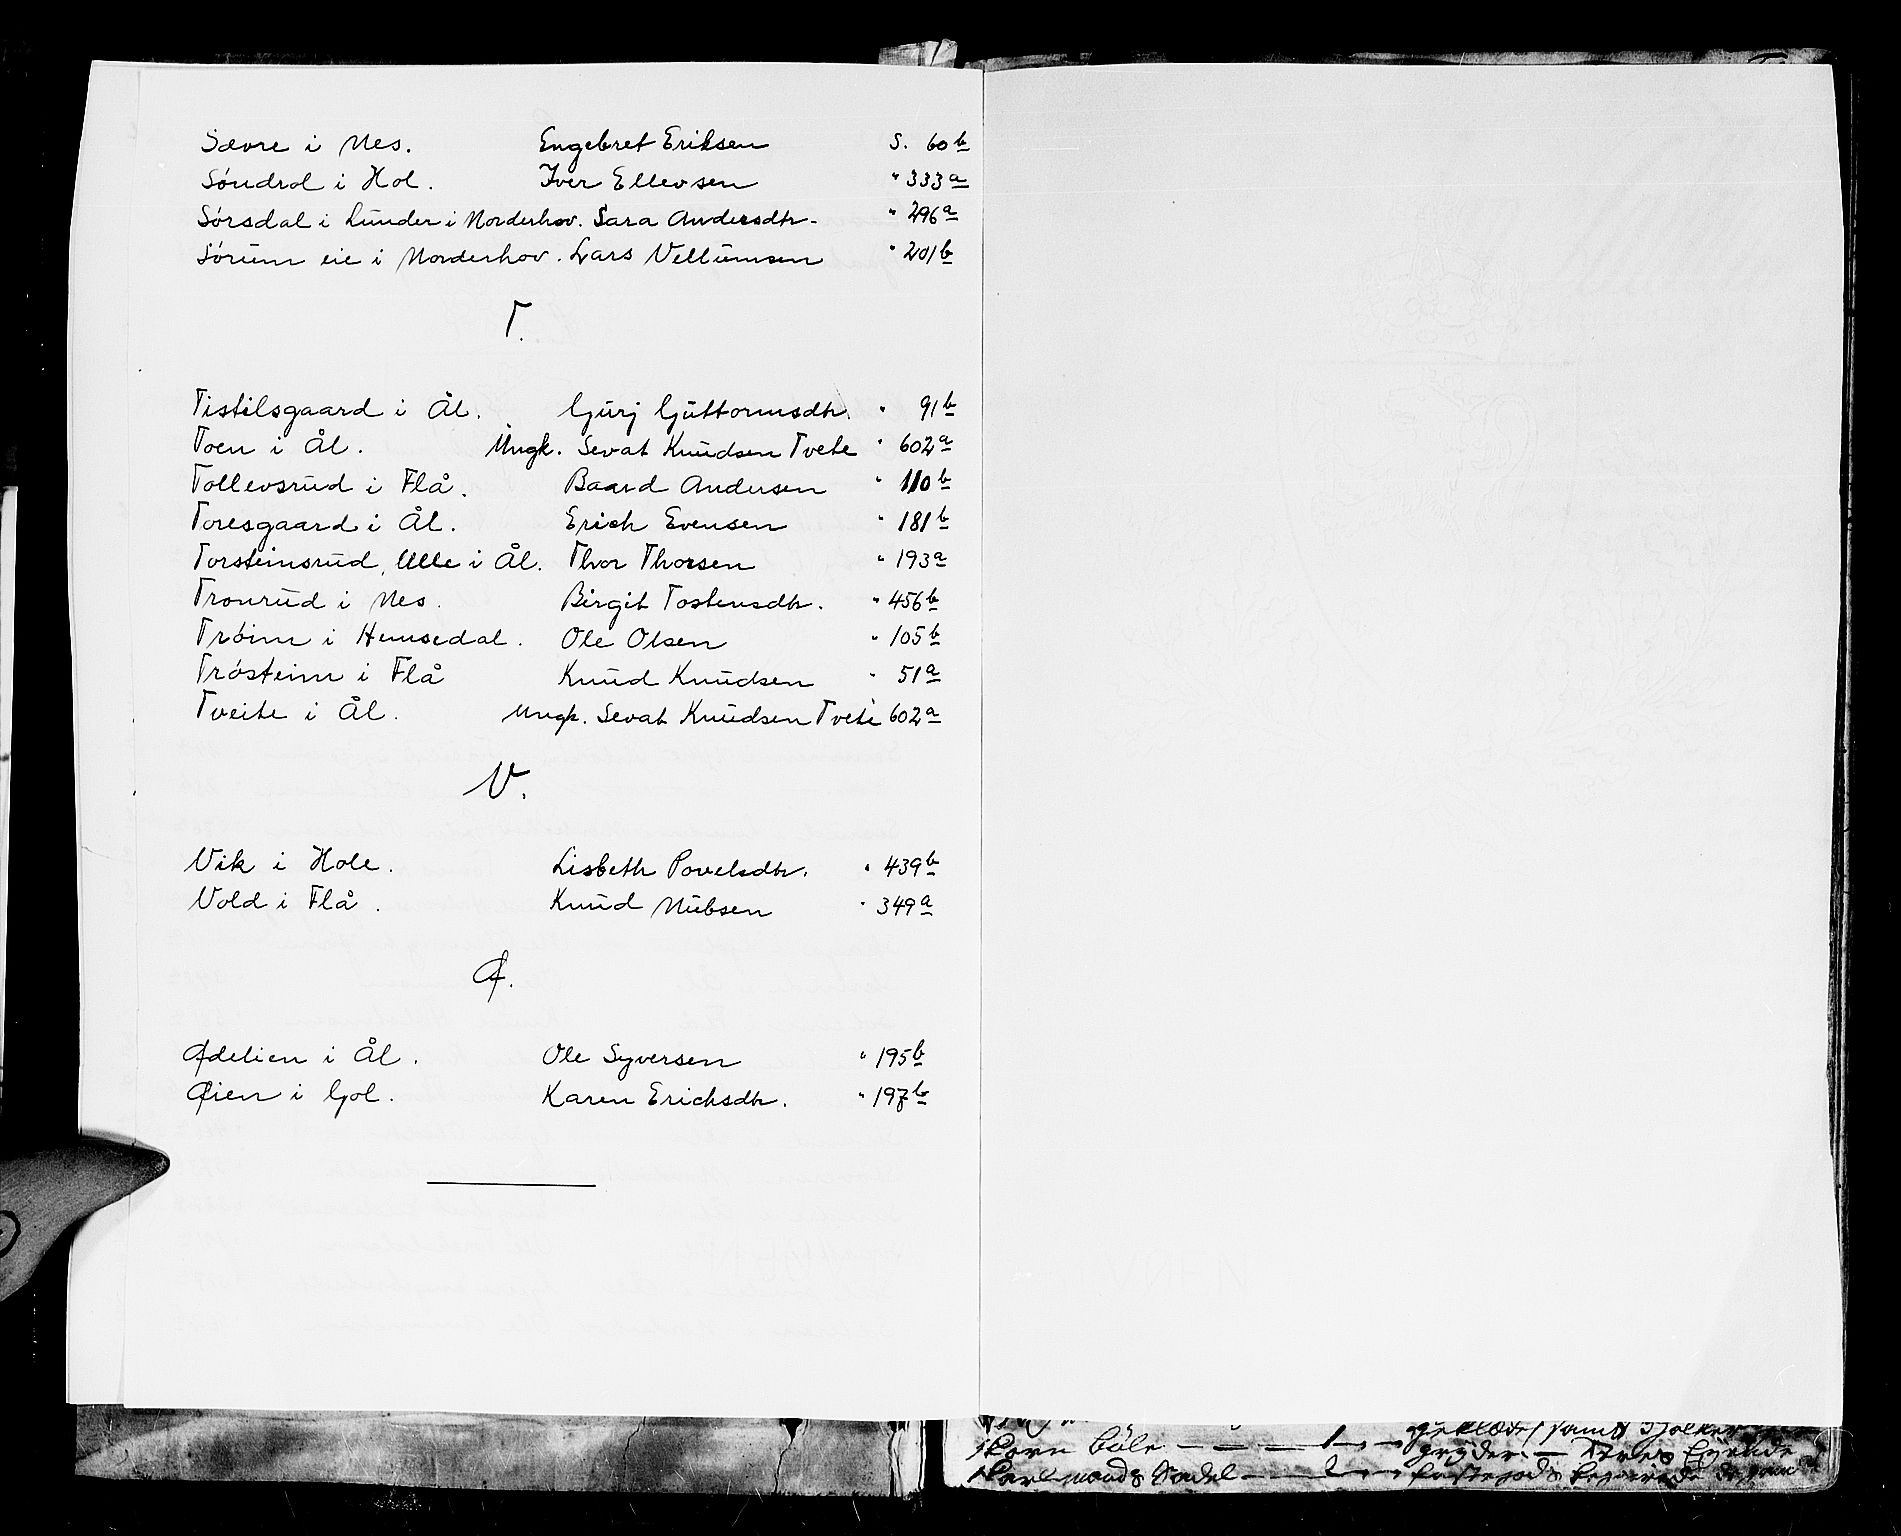 Sævre i Nes. Engebret Eriksen S. 60 b
Søndrol i Hol. Iver Ellevsen " 333 a
Sørsdal i Lunder i Norderhov. Sara Andersdtr. " 296 a
Sørum eie i Norderhov. Lars Vellumsen " 201 b
T.
Tistilsgaard i Ål. Gurj Guttormsdtr. " 91 b
Toen i Ål. Ungk. Sevat Knudsen Tvete " 602 a
Tollevsrud i Flå. Baard Andersen " 110 b
Toresgaard i Ål. Erich Evensen " 181 b
Torsteinsrud, Ulle i Ål. Thor Thorsen " 193 a
Tronrud i Nes. Birgit Tostensdtr. " 456 b
Trøim i Hemsedal. Ole Olsen " 105 b
Trøsteim i Flå Knud Knudsen " 51 a
Tveite i Ål. Ungk. Sevat Knudsen Tvete 602 a
V.
Vik i Hole. Lisbeth Povelsdtr. " 439 b
Vold i Flå. Knud Nubsen " 349 a
Ø.
Ødelien i Ål. Ole Syversen " 195 b
Øien i Gol. Karen Erichsdtr. " 197 b